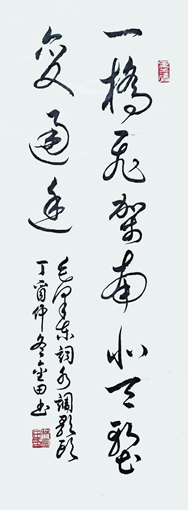 一桥飞架南北天堑
变通途
毛泽东词水调歌头
丁酉仲冬金田书